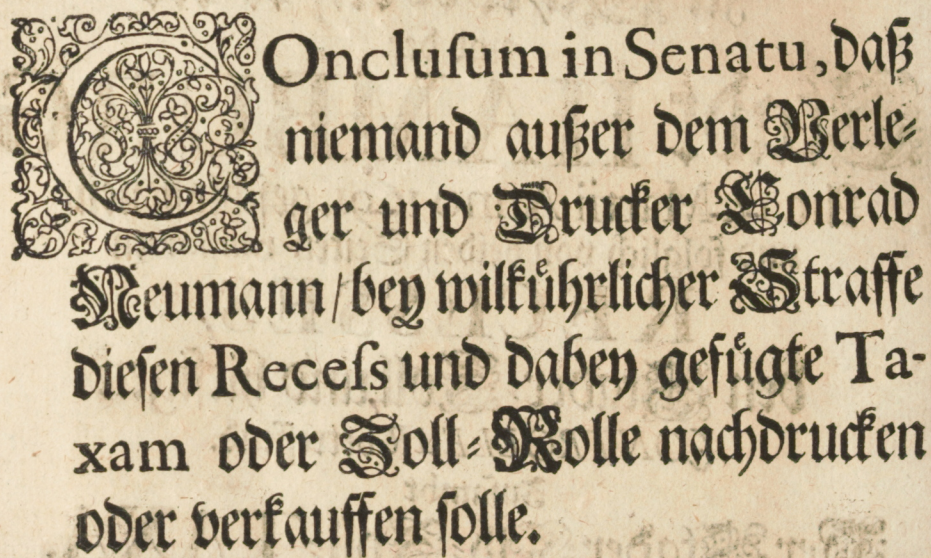 COncluſum in Senatu, daß
niemand außer dem Verle⸗
ger und Drucker Conrad
Neumann / bey wilkuͤhrlicher Straffe
dieſen Receſs und dabey gefuͤgte Ta-
xam oder Zoll⸗Rolle nachdrucken
oder verkauffen ſolle.